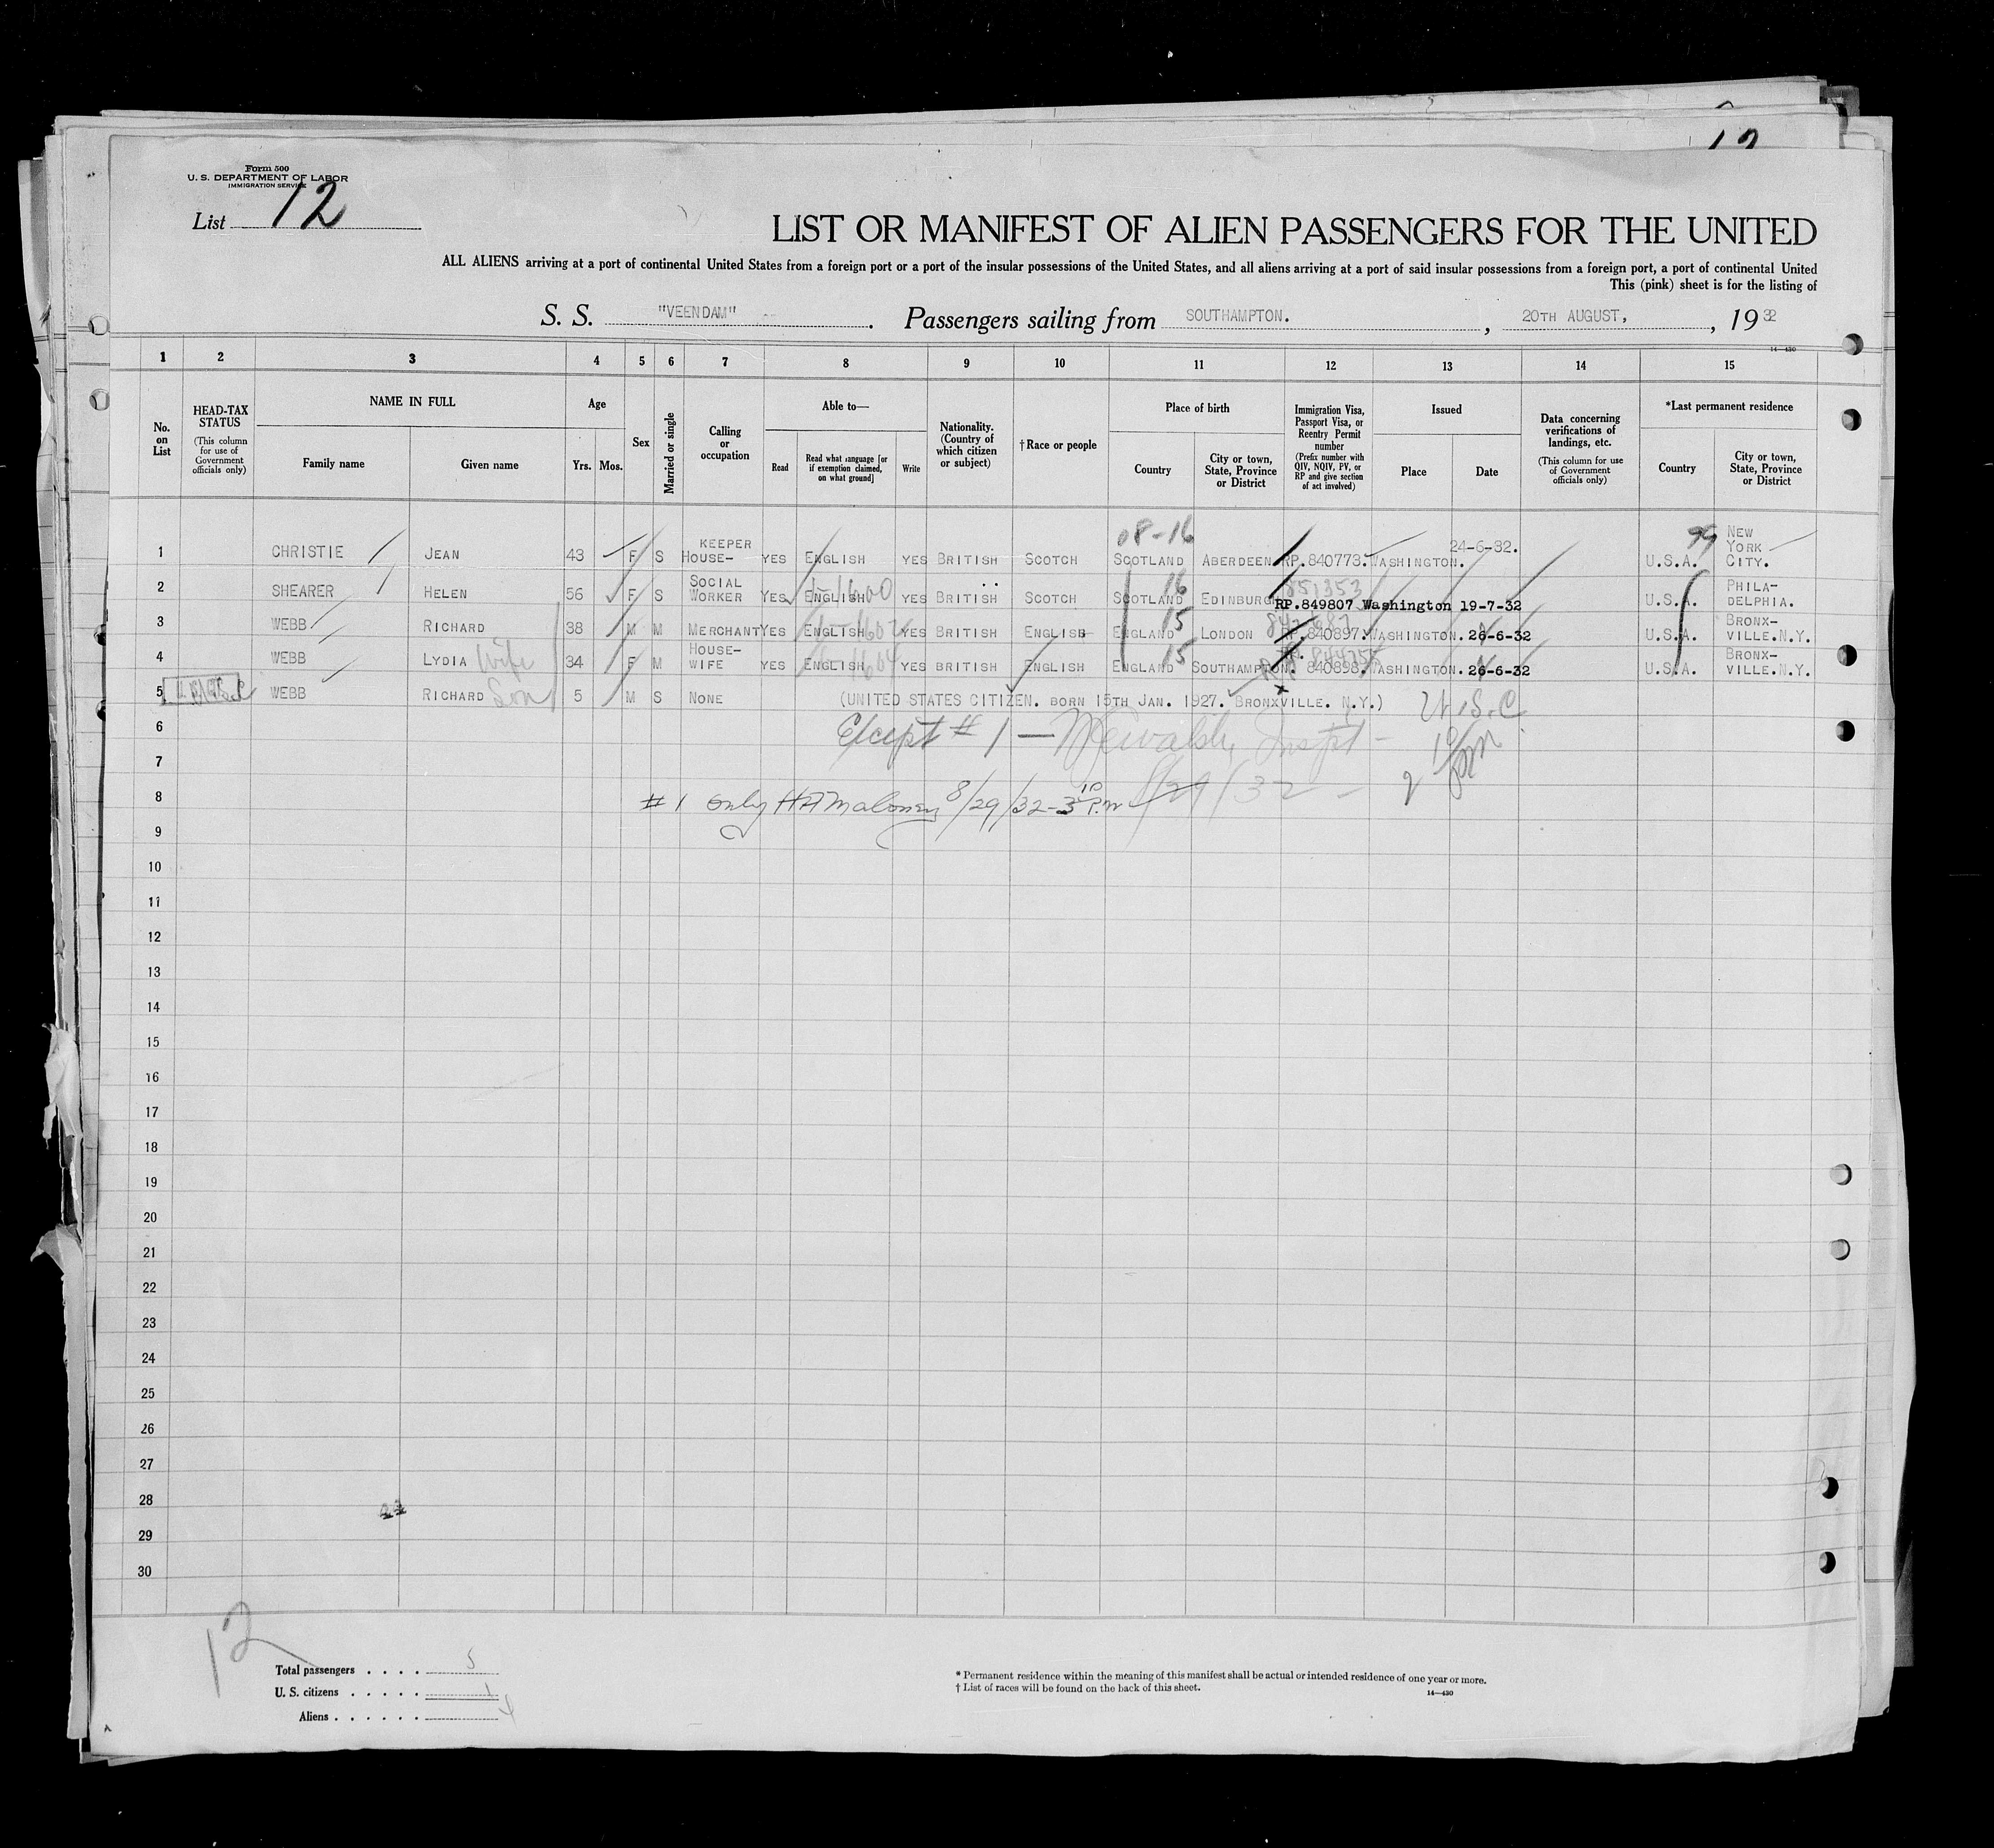 Form 500
U. S. DEPARTMENT OF LABOR
IMMIGRATION SERVICE
12
List 12
LIST OR MANIFEST OF ALIEN PASSENGERS FOR THE UNITED
ALL ALIENS arriving at a port of continental United States from a foreign port or a port of the insular possessions of the United States, and all aliens arriving at a port of said insular possessions from a foreign port, a port of continental United
This (pink) sheet is for the listing of
S. S. "VEENDAM" . Passengers sailing from SOUTHAMPTON. , 20TH AUGUST, , 19 32
14—430
1 2 3 4 5 6 7 8 9 10 11 12 13 14 15
No. on List
HEAD-TAX STATUS (This column for use of Government officials only)
NAME IN FULL
Family name
Given name
Age
Yrs. Mos.
Sex
Married or single
Calling or occupation
Able to—
Read
Read what language [or if exemption claimed, on what ground]
Write
Nationality. (Country of which citizen or subject)
†Race or people
Place of birth
Country
City or town, State, Province or District
Immigration Visa, Passport Visa, or Reentry Permit number (Prefix number with QIV, NQIV, PV, or RP and give section of act involved)
Issued
Place
Date
Data concerning verifications of landings, etc. (This column for use of Government officials only)
*Last permanent residence
Country
City or town, State, Province or District
08-16 99
1 CHRISTIE JEAN 43 F S KEEPER HOUSE- YES ENGLISH YES BRITISH SCOTCH SCOTLAND ABERDEEN RP.840773. WASHINGTON. 24-6-32. U.S.A. NEW YORK CITY.
16 851353
2 SHEARER HELEN 56 F S SOCIAL WORKER YES ENGLISH YES BRITISH SCOTCH SCOTLAND EDINBURG RP.849807 Washington 19-7-32 U.S.A. PHILA-DELPHIA.
15
3 WEBB RICHARD 38 M M MERCHANT YES ENGLISH YES BRITISH ENGLISH ENGLAND LONDON RP.840897. WASHINGTON. 26-6-32 U.S.A. BRONX-VILLE.N.Y.
15
4 WEBB LYDIA Wife 34 F M HOUSE-WIFE YES ENGLISH YES BRITISH ENGLISH ENGLAND SOUTHAMPTON. RP. 840898. WASHINGTON. 26-6-32 U.S.A. BRONX-VILLE.N.Y.
5 WEBB RICHARD Son 5 M S NONE (UNITED STATES CITIZEN. BORN 15TH JAN. 1927. BRONXVILLE. N.Y.) U.S.C
6 Except # 1 —
7
8 # 1 only H A Maloney 8/29/32-3 10 P.m 8/29/32 —
9
10
11
12
13
14
15
16
17
18
19
20
21
22
23
24
25
26
27
28
29
30
12
Total passengers . . . . 5
U. S. citizens . . . . . 1
Aliens . . . . . . 4
* Permanent residence within the meaning of this manifest shall be actual or intended residence of one year or more.
† List of races will be found on the back of this sheet.
14—430